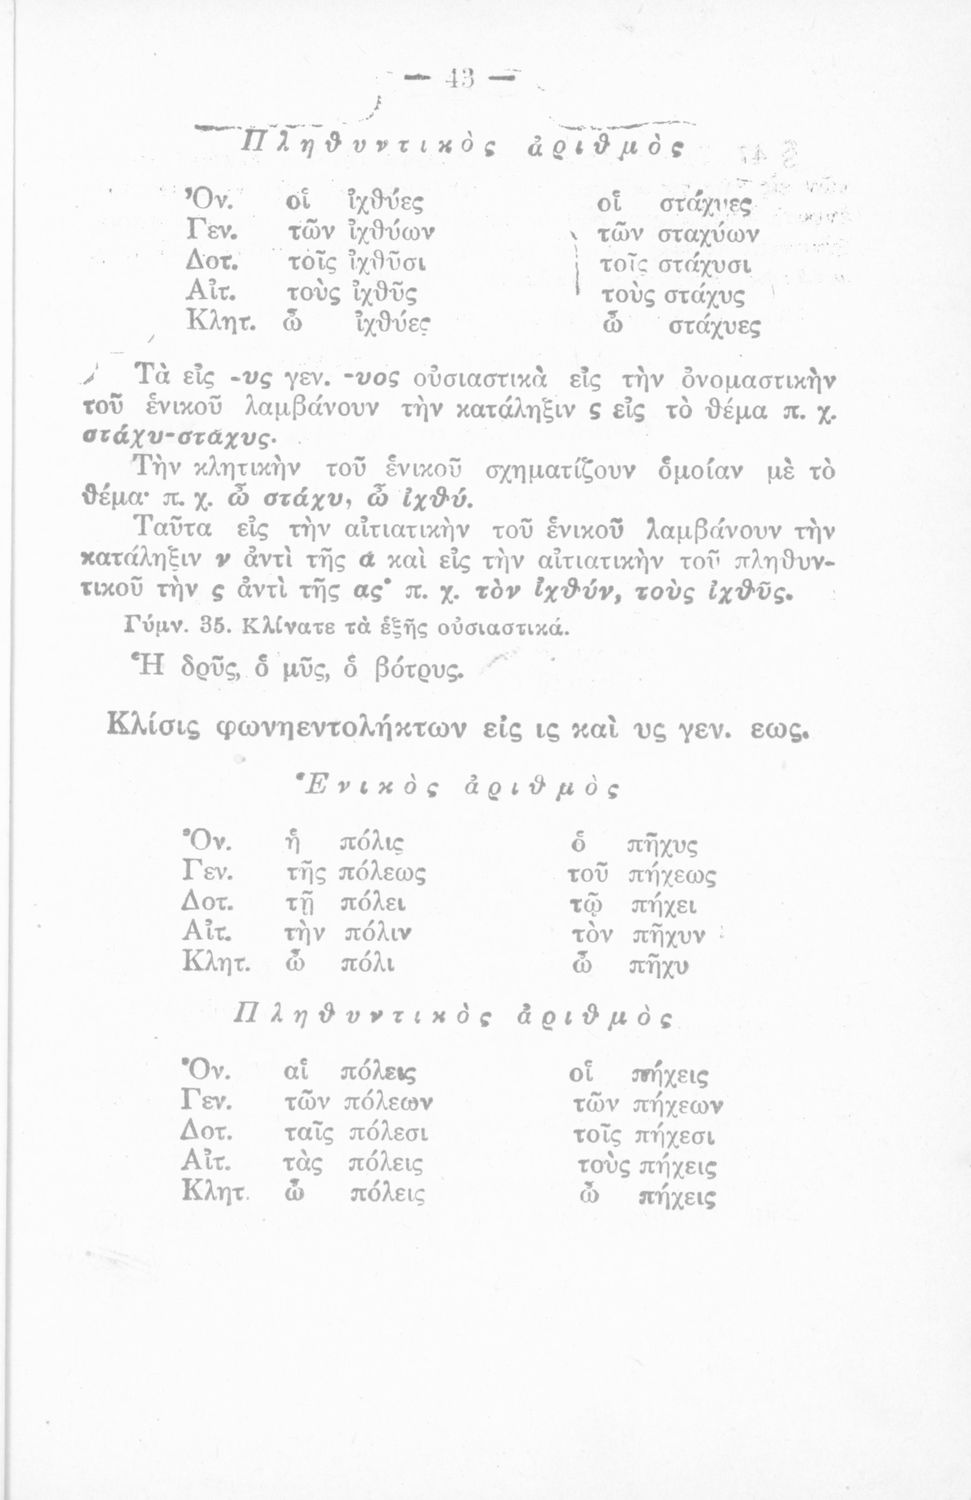 — 43 —
Πληθυντικὸς ἀριθμὸς
Ὀν. οἱ ἰχθύες οἱ στάχυες
Γεν. τῶν ἰχθύων τῶν σταχύων
Δοτ. τοῖς ἰχθῦσι τοῖς στάχυσι
Αἰτ. τοὺς ἰχθῦς τοὺς στάχυς
Κλητ. ὦ ἰχθύες ὦ στάχυες
Τὰ εἰς -υς γεν. -υος οὐσιαστικὰ εἰς τὴν ὀνομαστικὴν
τοῦ ἑνικοῦ λαμβάνουν τὴν κατάληξιν ς εἰς τὸ θέμα π. χ.
στάχυ-στάχυς·
Τὴν κλητικὴν τοῦ ἑνικοῦ σχηματίζουν ὁμοίαν μὲ τὸ
θέμα· π. χ. ὦ στάχυ, ὦ ἰχθύ.
Ταῦτα εἰς τὴν αἰτιατικὴν τοῦ ἑνικοῦ λαμβάνουν τὴν
κατάληξιν ν ἀντὶ τῆς α καὶ εἰς τὴν αἰτιατικὴν τοῦ πληθυν-
τικοῦ τὴν ς ἀντὶ τῆς ας· π. χ. τὸν ἰχθύν, τοὺς ἰχθῦς.
Γύμν. 35. Κλίνατε τὰ ἑξῆς οὐσιαστικά.
Ἡ δρῦς, ὁ μῦς, ὁ βότρυς.
Κλίσις φωνηεντολήκτων εἰς ις καὶ υς γεν. εως.
Ἑνικὸς ἀριθμὸς
Ὀν. ἡ πόλις ὁ πῆχυς
Γεν. τῆς πόλεως τοῦ πήχεως
Δοτ. τῇ πόλει τῷ πήχει
Αἰτ. τὴν πόλιν τὸν πῆχυν
Κλητ. ὦ πόλι ὦ πῆχυ
Πληθυντικὸς ἀριθμὸς
Ὀν. αἱ πόλεις οἱ πήχεις
Γεν. τῶν πόλεων τῶν πήχεων
Δοτ. ταῖς πόλεσι τοῖς πήχεσι
Αἰτ. τὰς πόλεις τοὺς πήχεις
Κλητ. ὦ πόλεις ὦ πήχεις